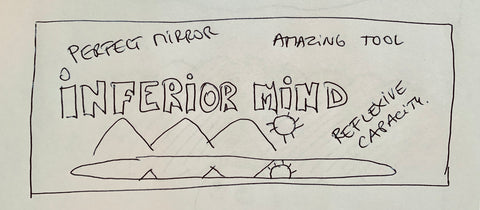 PERFECT MIRROR
AMAZING TOOL
INFERIOR MIND
REFLEXIVE
CAPACITY.